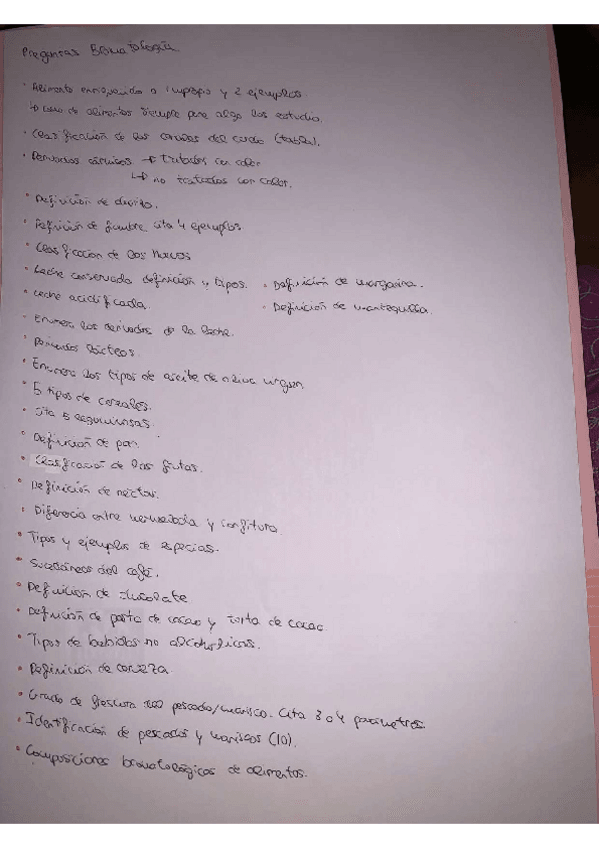 Preguntas Bromatología
• Alimento enriquecido o impropio y 2 ejemplos.
↳ de alimentos siempre para algo los estudio.
• Clasificación de las canales del cerdo (tabla).
• Derivados cárnicos → Tratados con calor
↳ no tratados con calor.
• Definición de
• Definición de fiambre, cita 4 ejemplos
• Clasificación de los huevos
• Leche conservada definición y tipos. • Definición de margarina.
• Leche acidificada. • Definición de mantequilla.
• Enumera los derivados de la leche.
• lácteos.
• Enumera los tipos de aceite de oliva virgen
• 5 tipos de cereales.
• Cita 5 leguminosas.
• Definición de pan.
• Clasificación de las frutas.
• Definición de néctar.
• Diferencia entre mermelada y confitura.
• Tipos y ejemplos de especias.
• Sucedáneos del café.
• Definición de chocolate
• Definición de pasta de cacao y torta de cacao
• Tipos de bebidas no alcohólicas.
• Definición de cerveza
• Grado de frescura pescado/marisco. Cita 3 o 4 parámetros.
• Identificación de pescados y mariscos (10).
• Composiciones bromatológicas de alimentos.